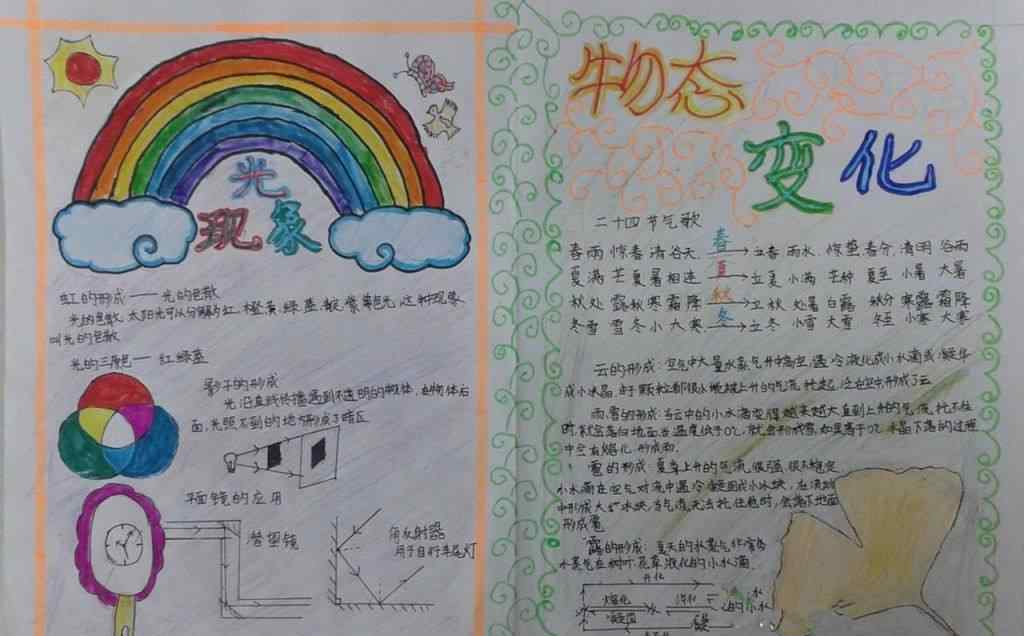 光
现象
虹的形成——光的色散
光的色散:太阳光可以分解为红、橙、黄、绿、蓝、靛、紫等色光,这种现象
叫光的色散
光的三原色——红绿蓝
影子的形成
光沿直线传播遇到不透明的物体,在物体后
面,光照不到的地方形成了暗区
平面镜的应用
潜望镜
角反射器
用于自行车尾灯
物态
变化
二十四节气歌
春雨惊春清谷天 春 立春 雨水 惊蛰 春分 清明 谷雨
夏满芒夏暑相连 夏 立夏 小满 芒种 夏至 小暑 大暑
秋处露秋寒霜降 秋 立秋 处暑 白露 秋分 寒露 霜降
冬雪雪冬小大寒 冬 立冬 小雪 大雪 冬至 小寒 大寒
云的形成:空气中大量水蒸气升中高空,遇冷液化成小水滴或凝华
成小冰晶,时颗粒都很小被上升的气流托起,这在空中形成了云
雨、雪的形成:当云中的小水滴变得越来越大直到上升的气流托不住
时,就会落向地面若温度低于0℃,就会形成雪,如果高于0℃冰晶下落的过程
中会有熔化形成
雹的形成:夏季上升的气流很强很不稳定
小水滴在空气对流中遇冷凝固成小冰块,在流动
中形成大冰块,当气流无法托住它时,便落下地面
形成雹
露的形成:夏天的水蒸气
水蒸气在树叶花草液化的小水滴
升华
熔化
凝固
的小水